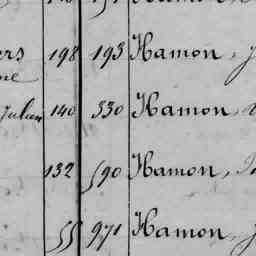 198 193 Hamon,
Julien 140 330 Hamon,
132 590 Hamon,
55 971 Hamon,